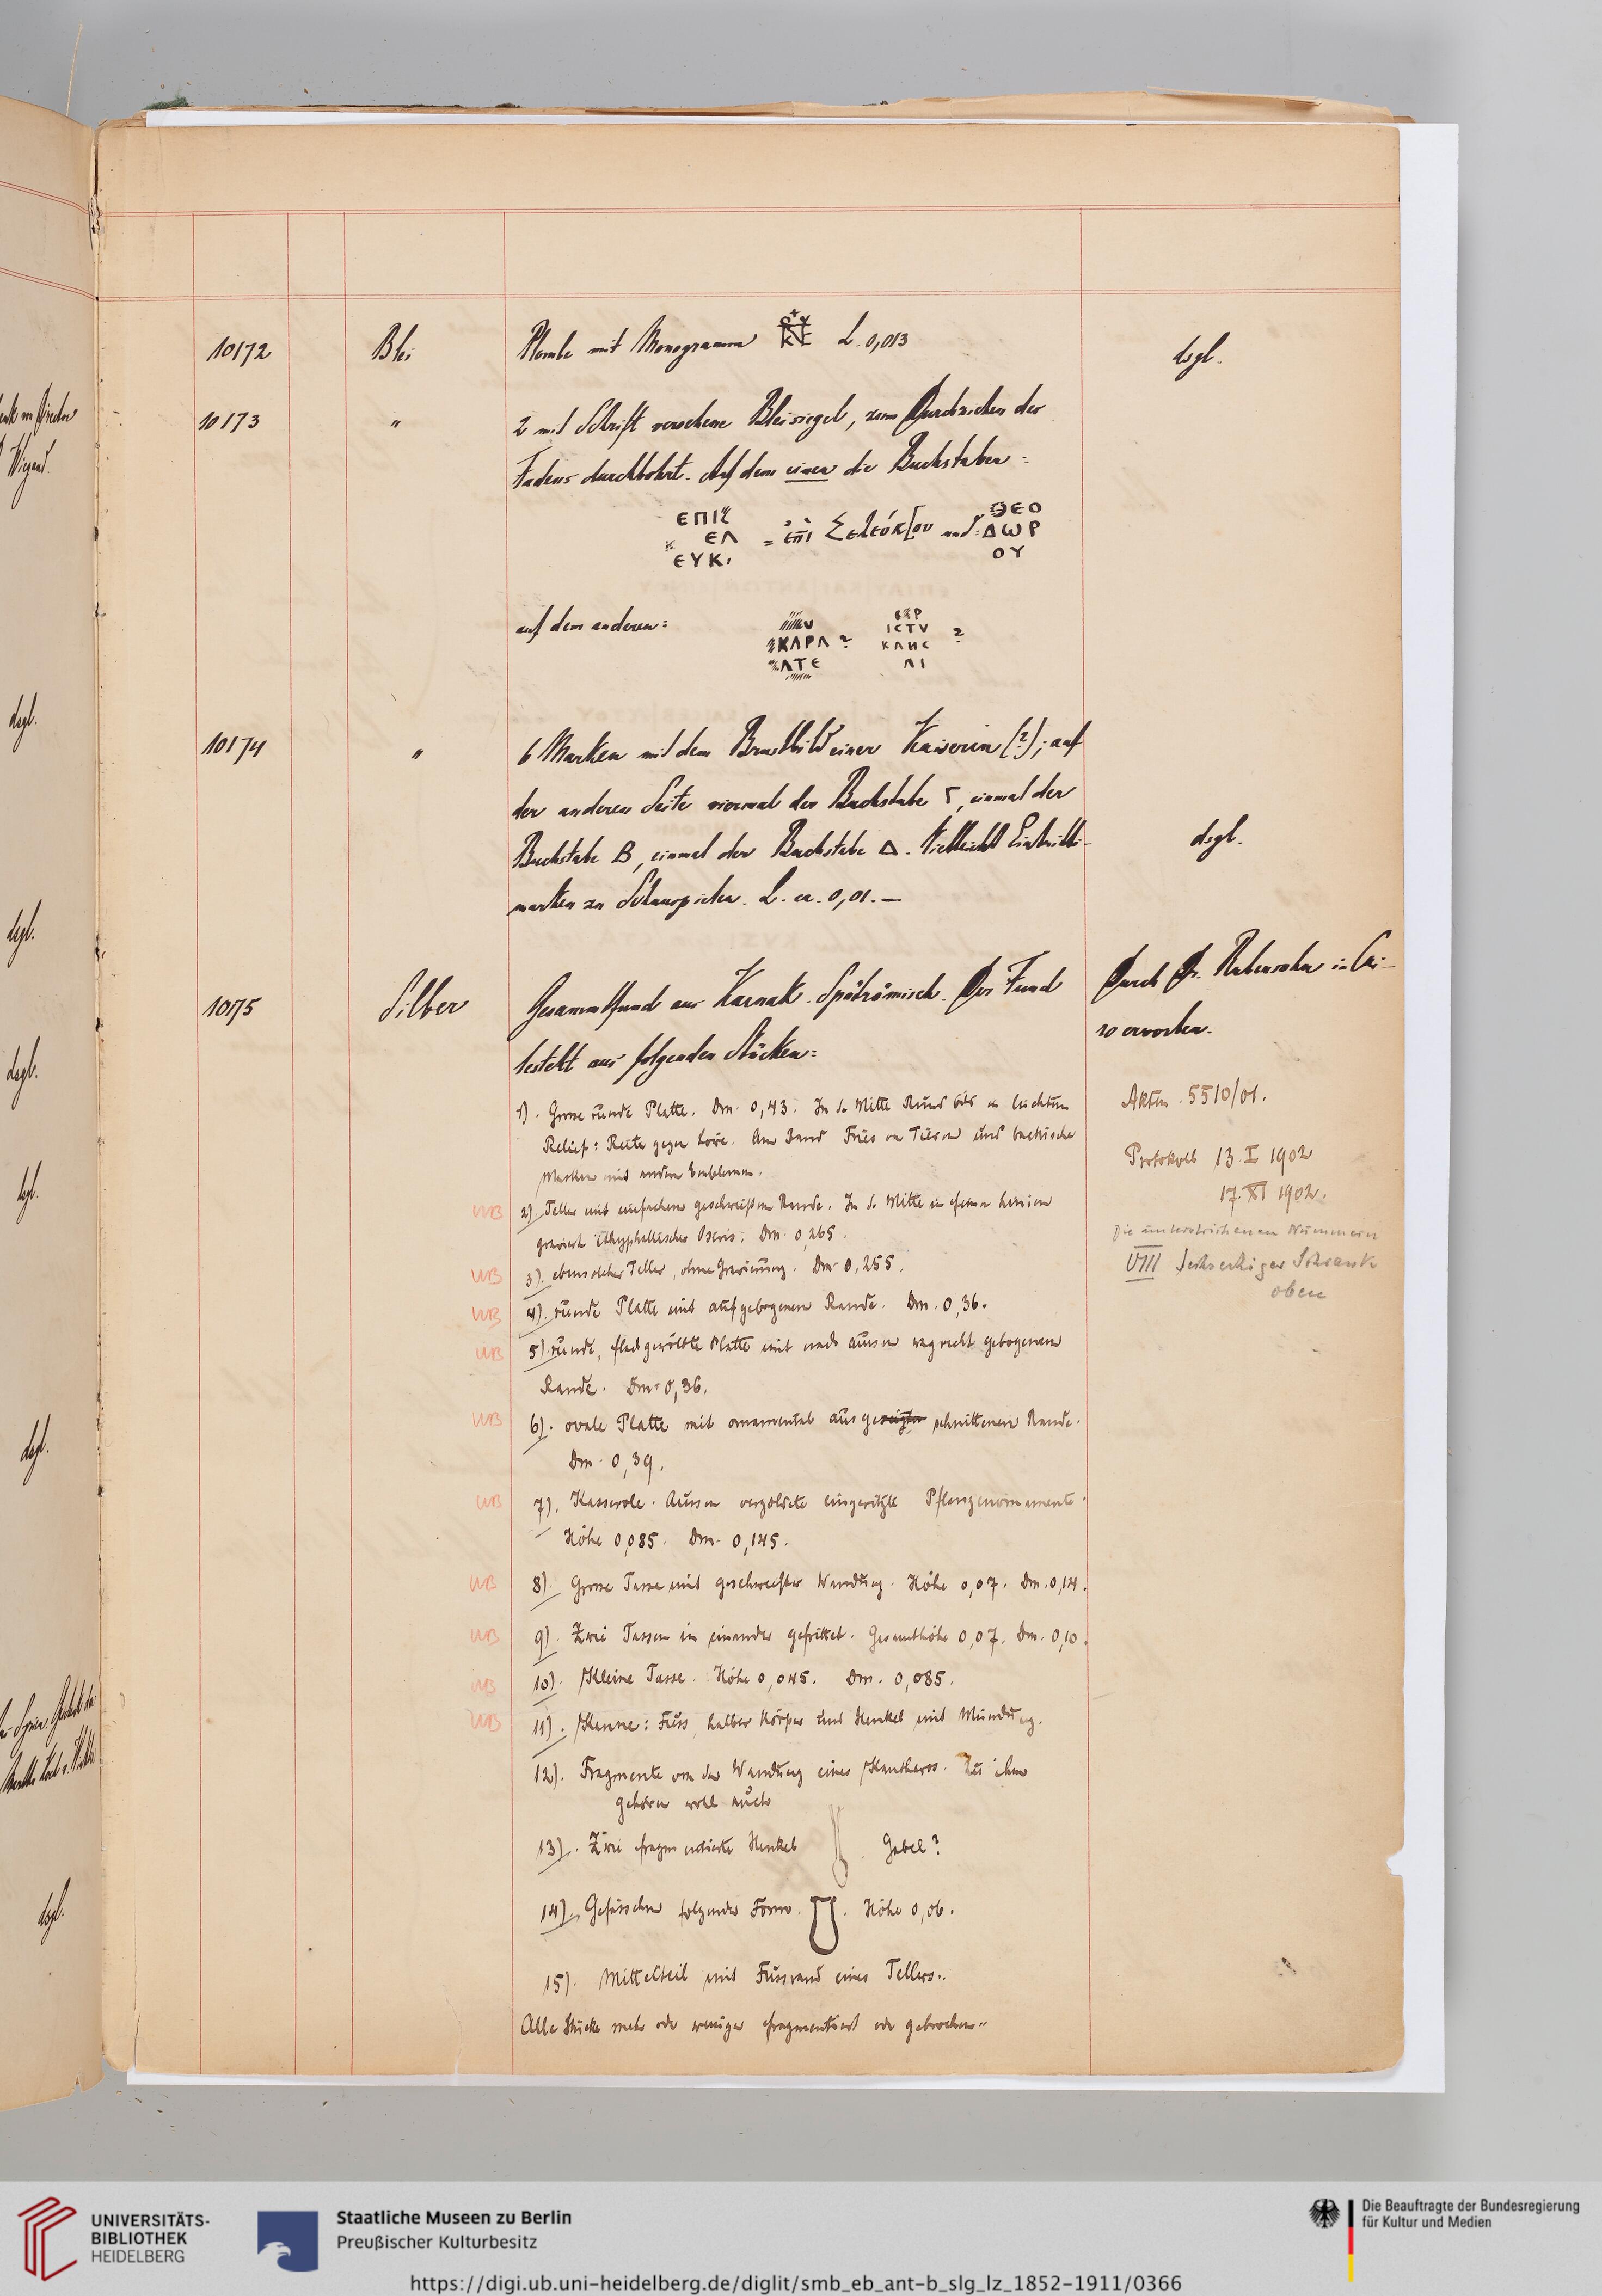 10172 Blei Plombe mit Monogramm L. 0,013 dsgl.
10173 " 2 mit Schrift versehene Bleisiegel, zum Durchziehen der
Fadens durchbohrt. Auf dem einen die Buchstaben:
ΕΠΙΣ ΘΕΟ
ΕΛ = ἐπὶ Σελεύκ[ου und: ΔΩΡ
ΕΥΚΙ ΟΥ
auf dem anderen:
ΚΑΡΛ ? ΙCΤV ?
ΛΤΕ ΚΛΗC
ΛΙ
10174 " 6 Marken mit dem Brustbild einer Kaiserin (?); auf
der anderen Seite viermal der Buchstabe Γ, einmal der
Buchstabe B, einmal der Buchstabe Δ. Vielleicht Eintritts-
marken zu Schauspielen. L. ca. 0,01. —
dsgl.
10175 Silber Gesammtfund aus Karnak. Spätrömisch. Der Fund
besteht aus folgenden Stücken:
Durch Dr. Rubensohn in Cai-
ro erworben.
Akten 5510/01.
Protokoll 13. I 1902
17. XI 1902.
Die unterstrichenen Nummern
VIII Sechseckiger Schrank
oben
1). Grosse runde Platte. Dm. 0,43. In d. Mitte Rundbild in leichtem
Relief: Reiter gegen Löwe. Am Rand Fries von Tieren und bachische
Masken und andere Emblemen.
WB 2). Teller mit einfachem geschweiften Rande. In d. Mitte in feinen Linien
graviert ithyphallischer Osiris. Dm. 0,265.
WB 3). ebensolcher Teller, ohne Gravierung. Dm. 0,255.
WB 4). runde Platte mit aufgebogenem Rande. Dm. 0,36.
WB 5) runde, flachgewölbte Platte mit nach aussen wagrecht gebogenem
Rande. Dm. 0,36.
WB 6). ovale Platte mit ornamental ausgeschnittenem Rande.
Dm. 0,39.
WB 7). Kasserole. Aussen vergoldete eingeritzte Pflanzenornamente.
Höhe 0,085. Dm. 0,145.
WB 8). Grosse Tasse mit geschweifter Wandung. Höhe 0,07. Dm. 0,14.
WB 9). Zwei Tassen in einander gefrittet. Gesamthöhe 0,07. Dm. 0,10.
WB 10). Kleine Tasse. Höhe 0,045. Dm. 0,085.
WB 11). Kanne: Fuss, halber Körper und Henkel mit Mündung.
12). Fragmente von der Wandung eines Kantharos. Zu ihm
gehören wohl auch
13). Zwei fragmentierte Henkel Gabel?
14). Gefässchen folgender Form. Höhe 0,06.
15). Mittelteil mit Fussrand eines Tellers.
Alle Stücke mehr oder weniger fragmentiert oder gebrochen.
dsgl.
dsgl.
dsgl.
dsgl.
dsgl.
dsgl.
UNIVERSITÄTS-
BIBLIOTHEK
HEIDELBERG
Staatliche Museen zu Berlin
Preußischer Kulturbesitz
Die Beauftragte der Bundesregierung
für Kultur und Medien
https://digi.ub.uni-heidelberg.de/diglit/smb_eb_ant-b_slg_lz_1852-1911/0366